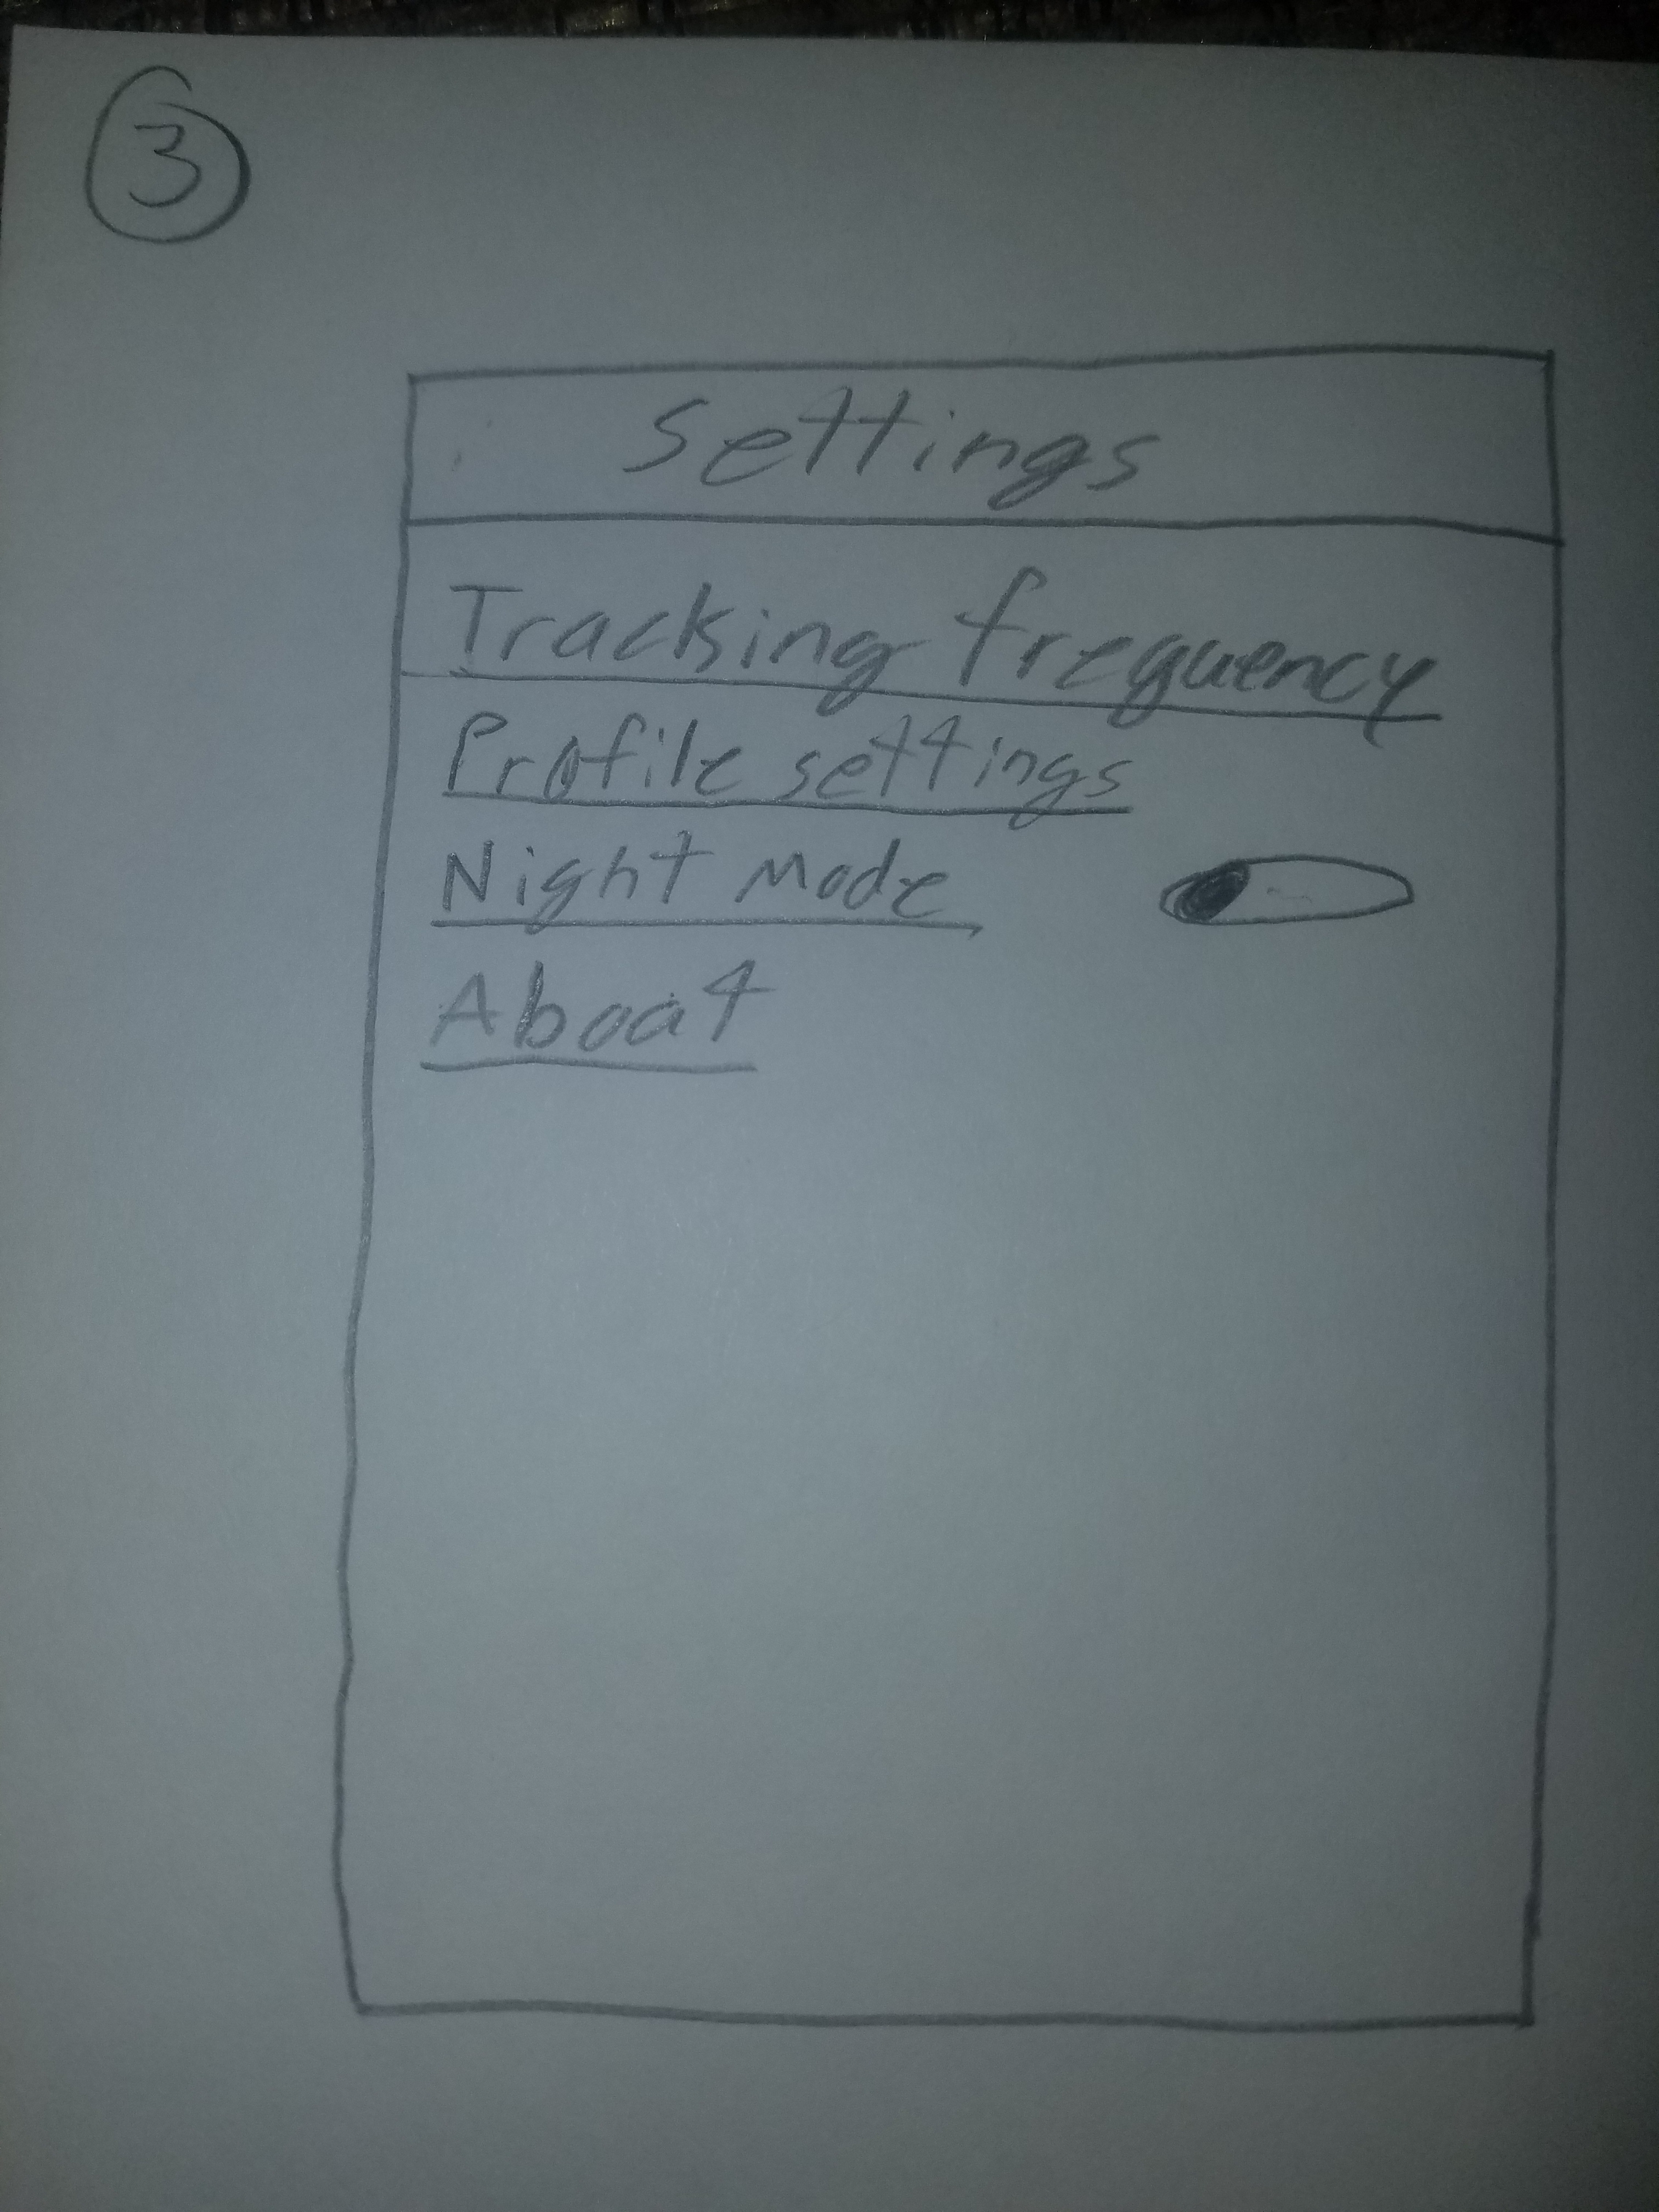 3
Settings
Tracking frequency
Profile settings
Night Mode
About